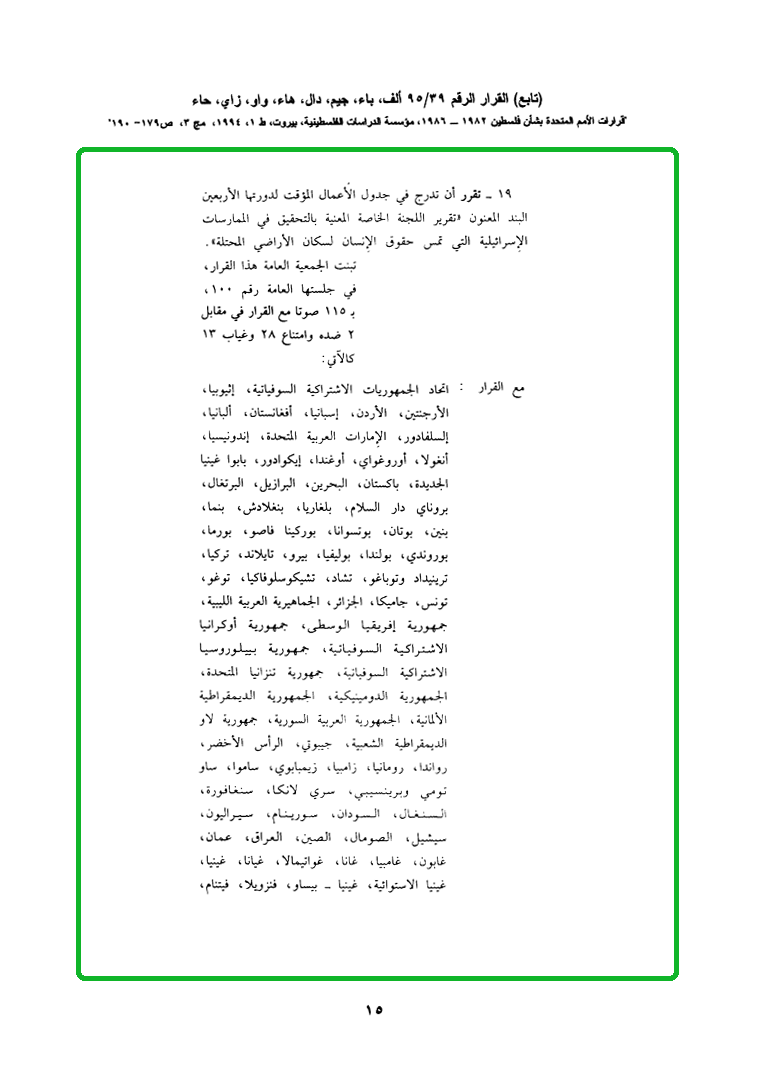 (تابع) القرار الرقم ٩٥/٣٩ ألف، باء، جيم، دال، هاء، واو، زاي، حاء
"قرارات الأمم المتحدة بشأن فلسطين ١٩٨٢ ــ ١٩٨٦، مؤسسة الدراسات الفلسطينية، بيروت، ط ١، ١٩٩٤، مج ٣، ص١٧٩- ١٩٠"
١٩ ـ تقرر أن تدرج في جدول الأعمال المؤقت لدورتها الأربعين
البند المعنون «تقرير اللجنة الخاصة المعنية بالتحقيق في الممارسات
الإسرائيلية التي تمس حقوق الإنسان لسكان الأراضي المحتلة».
تبنت الجمعية العامة هذا القرار،
في جلستها العامة رقم ١٠٠،
بـ ١١٥ صوتا مع القرار في مقابل
٢ ضده وامتناع ٢٨ وغياب ١٣
كالآتي:
مع القرار : اتحاد الجمهوريات الاشتراكية السوفياتية، إثيوبيا،
الأرجنتين، الأردن، إسبانيا، أفغانستان، ألبانيا،
إلسلفادور، الإمارات العربية المتحدة، إندونيسيا،
أنغولا، أوروغواي، أوغندا، إيكوادور، بابوا غينيا
الجديدة، باكستان، البحرين، البرازيل، البرتغال،
بروناي دار السلام، بلغاريا، بنغلادش، بنما،
بنين، بوتان، بوتسوانا، بوركينا فاصو، بورما،
بوروندي، بولندا، بوليفيا، بيرو، تايلاند، تركيا،
ترينيداد وتوباغو، تشاد، تشيكوسلوفاكيا، توغو،
تونس، جاميكا، الجزائر، الجماهيرية العربية الليبية،
جمهورية إفريقيا الوسطى، جمهورية أوكرانيا
الاشتراكية السوفياتية، جمهورية بييلوروسيا
الاشتراكية السوفياتية، جمهورية تنزانيا المتحدة،
الجمهورية الدومينيكية، الجمهورية الديمقراطية
الألمانية، الجمهورية العربية السورية، جمهورية لاو
الديمقراطية الشعبية، جيبوتي، الرأس الأخضر،
رواندا، رومانيا، زامبيا، زيمبابوي، ساموا، ساو
تومي وبرينسيبي، سري لانكا، سنغافورة،
السنغال، السودان، سورينام، سيراليون،
سيشيل، الصومال، الصين، العراق، عمان،
غابون، غامبيا، غانا، غواتيمالا، غيانا، غينيا،
غينيا الاستوائية، غينيا ـ بيساو، فنزويلا، فيتنام،
١٥